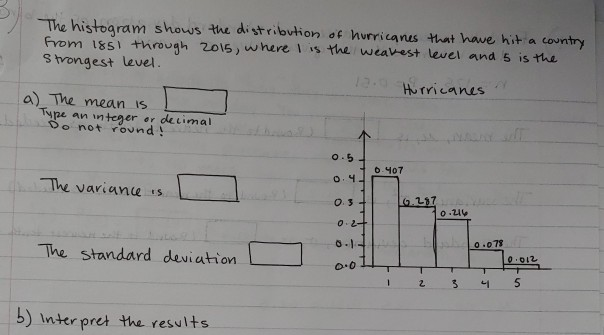 The histogram shows the distribution of hurricanes that have hit a country
from 1851 through 2015, where 1 is the weakest level and 5 is the
strongest level.
Hurricanes
a) The mean is
Type an integer or decimal
Do not round!
The variance is
The standard deviation
0.5
0.4
0.3
0.2
0.1
0.0
0.407
0.287
0.216
0.078
0.012
1 2 3 4 5
b) Interpret the results